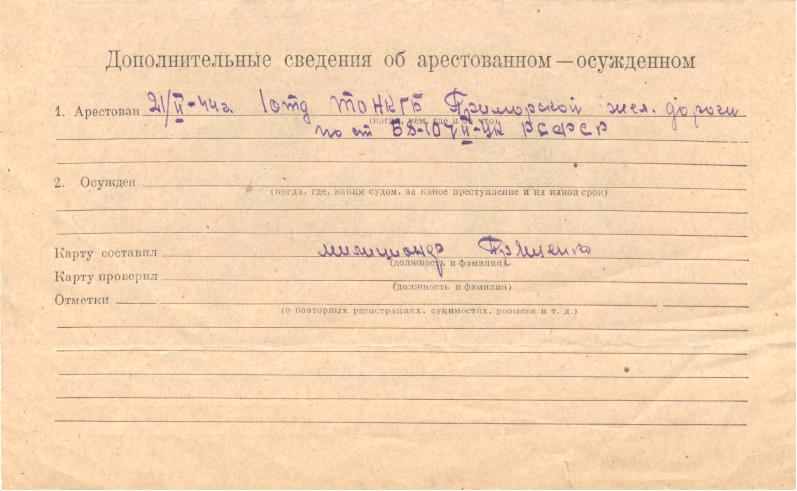 Дополнительные сведения об арестованном — осужденном
1. Арестован 21/II-44г. 1 отд ТОНКГБ Приморской жел. дороги
(когда, кем, где и за что)
по ст 58-10 ч II-УК РСФСР
2. Осужден
(когда, где, каким судом, за какое преступление и на какой срок)
Карту составил милиционер
(должность и фамилия)
Карту проверил
(должность и фамилия)
Отметки
(о повторных регистрациях, судимостях, розыске и т. д.)